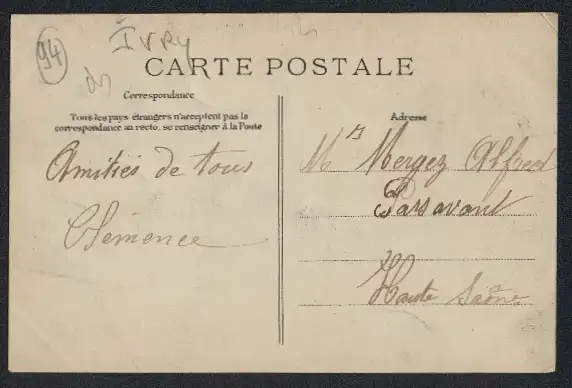 94
IVRY
CARTE POSTALE
Correspondance
Tous les pays étrangers n'acceptent pas la
correspondance au recto, se renseigner à la Poste
Amitiés de tous
Clémence
Adresse
Mr Mergez Alfred
Passavant
Haute Saône